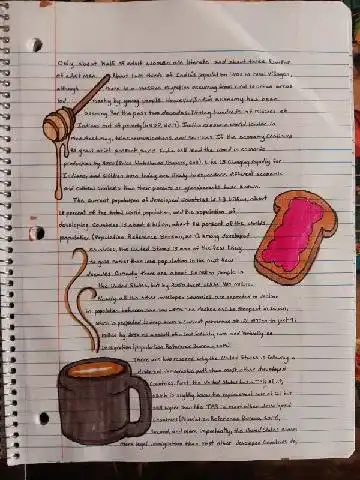 Only about half of adult women are literate and about three fourths
of adult men. About two thirds of India's population lives in rural villages,
although there is a massive migration occurring from rural to urban areas
led mostly by young people. However, India's economy has been
booming for the past two decades, lifting hundreds of millions of
Indians out of poverty India became a world leader in
manufacturing, telecommunications, and services. If the economy continues
to grow at its present rate, India will lead the world in economic
production by Life is changing rapidly for
Indians, and children born today are likely to experience different economic
and cultural contexts than their parents or grandparents have known.
The current population of developed countries is 1.3 billion, about
18 percent of the total world population, and the population of
developing countries is about 6 billion, about 82 percent of the world's
population (Population Reference Bureau, Among developed
countries, the United States is one of the few likely
to gain rather than lose population in the next few
decades. Currently there are about million people in
the United States, but by 2050 there will be million.
Nearly all the other developed countries are expected to decline
in population between now and 2050. The decline will be steepest in Japan,
which is projected to drop from a current population of million to just
million by 2050, as a result of a low fertility rate and virtually no
immigration (Population Reference Bureau,
There are two reasons why the United States is following a
different demographic path than most other developed
countries. First, the United States has a of
which is slightly below the replacement rate of 2.1 but
still higher than the TFR in most other developed
countries (Population Reference Bureau,
Second, and more importantly, the United States allows
more legal immigration than most other developed countries do,